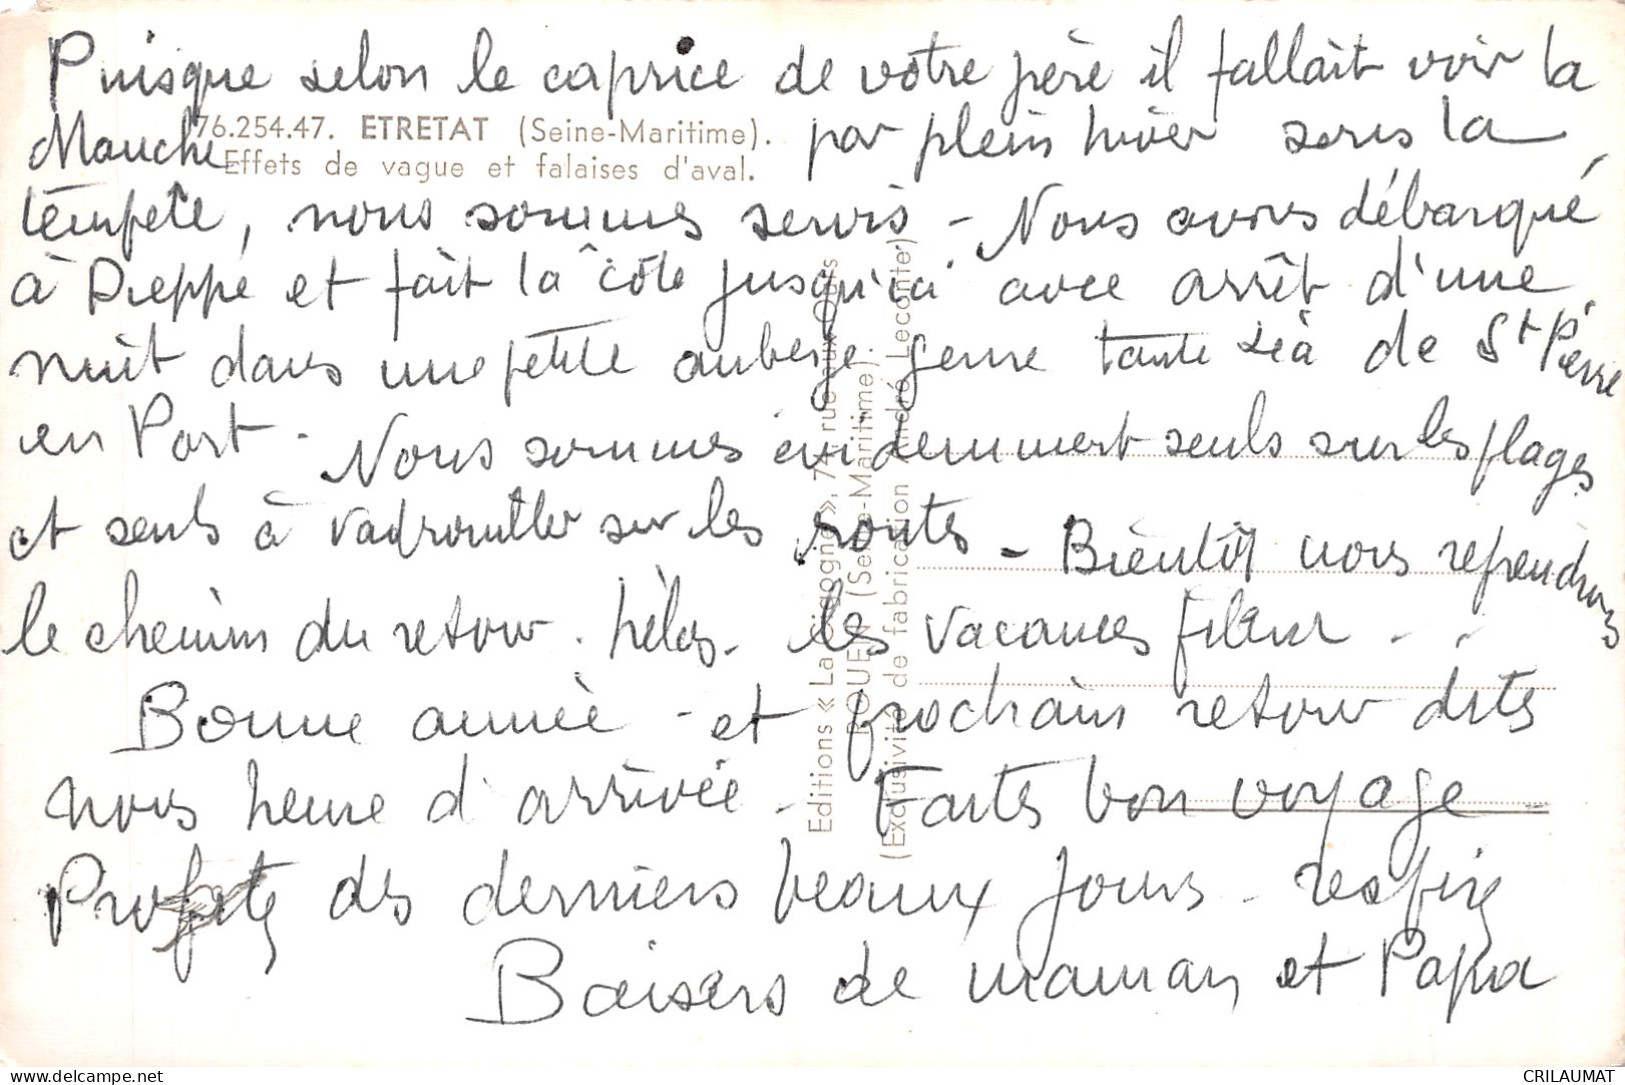 Puisque selon le caprice de votre père il fallait voir la
Manche par plein hiver sous la
76.254.47. ETRETAT (Seine-Maritime).
Effets de vague et falaises d'aval.
tempête, nous sommes servis - Nous avons débarqué
à Dieppe et fait la côte jusqu'ici avec arrêt d'une
nuit dans une petite auberge genre tante Léa de St Pierre
en Port - Nous sommes évidemment seuls sur les plages
et seuls à vadrouiller sur les routes - Bientôt nous reprendrons
le chemin du retour. hélas - les vacances filent - -
Bonne année - et prochain retour dites
nous heure d'arrivée - Faites bon voyage -
Profitez des derniers beaux jours - respirez
Baisers de maman et Papa
Editions « La Cigogne », 74, rue aux Ours
ROUEN (Seine-Maritime).
(Exclusivité de fabrication André Leconte)
delcampe.net
CRILAUMAT